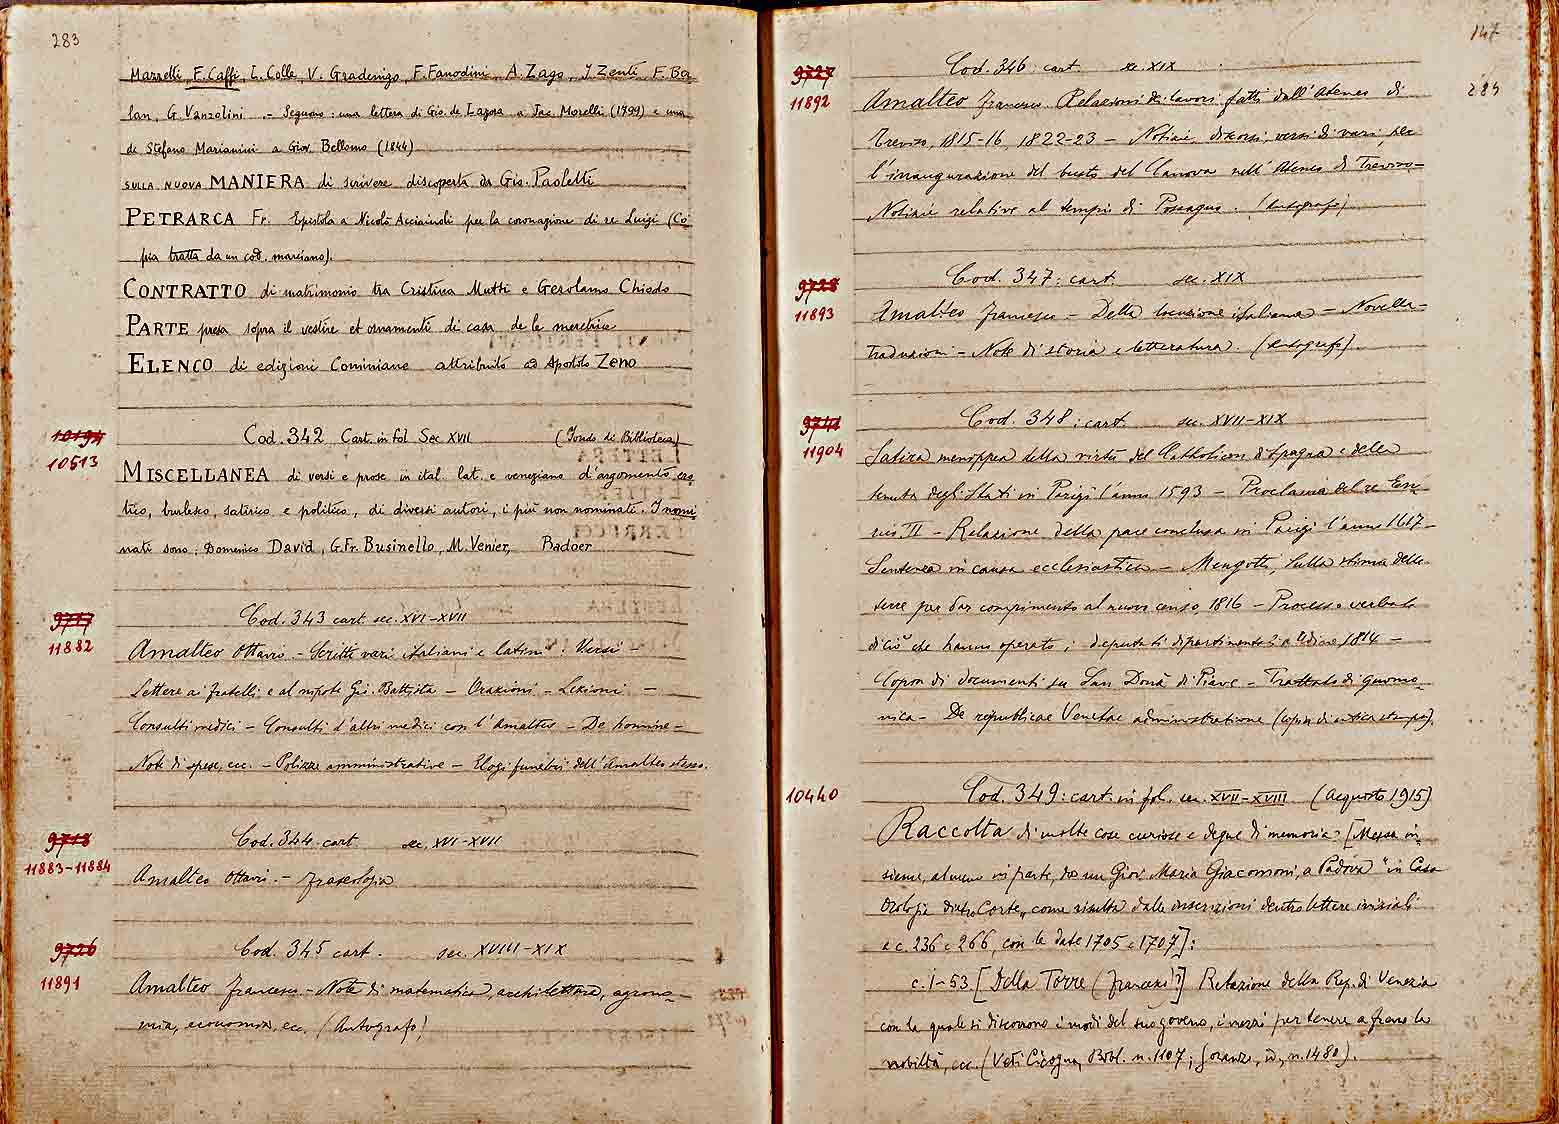 283
Mazzetti, F. Caffi, L. Colle, V. Gradenigo, F. Fanodini, A. Zago, J. Zenti, F. Bal
lan, G. Vanzolini .- Seguono: una lettera di Gio. de Lazara a Jac. Morelli (1799) e una
de Stefano Marianini a Giov. Bellomo (1844)
SULLA NUOVA MANIERA di scrivere discoperta da Gio. Paoletti
PETRARCA Fr. Epistola a Nicolò Acciaiuoli per la coronazione di re Luigi (Co
pia tratta da un cod. marciano).
CONTRATTO di matrimonio tra Cristina Mutti e Gerolamo Chiodo
PARTE presa sopra il vestire et ornamenti di casa de le meretrice
ELENCO di edizioni Cominiane attribuito ad Apostolo Zeno
10194
10513
Cod. 342 Cart. in fol. Sec XVII (Fondo di Biblioteca)
MISCELLANEA di versi e prose in ital. lat. e veneziano d'argomento ero
tico, burlesco, satirico e politico, di diversi autori, i più non nominati. I nomi
nati sono: Domenico David, G. Fr. Businello, M. Venier, Badoer
9717
11882
Cod. 343 cart. sec. XVI-XVII
Amalteo Ottavio - Scritti vari italiani e latini: Versi -
Lettere ai fratelli e al nipote Gio. Battista - Orazioni - Lezioni -
Consulti medici - Consulti d'altri medici con l'Amalteo - De homine -
Note di spese, ecc. - Polizze amministrative - Elogi funebri dell'Amalteo stesso.
9718
11883-11884
Cod. 344 cart sec. XVI-XVII
Amalteo Ottavi. - Fraseologia
9726
11891
Cod. 345 cart. sec. XVIII-XIX
Amalteo Francesco - Note di matematica, architettura, agrono-
mia, economia, ecc. (Autografo)
147
283
9727
11892
Cod. 346 cart. sec. XIX
Amalteo Francesco Relazioni dei lavori fatti dall'Ateneo di
Treviso, 1815-16, 1822-23 - Notizie, discorsi, versi di vari, per
l'innaugurazione del busto del Canova nell'Ateneo di Treviso -
Notizie relative al tempio di Possagno. (Autografo)
9728
11893
Cod. 347: cart. sec. XIX
Amalteo Francesco - Della locuzione italiana - Novelle -
Traduzioni - Note di storia e letteratura. (Autografo).
9741
11904
Cod. 348: cart. sec. XVII-XIX
Satira menippea della virtù del Catholicon di Spagna e della
tenuta degli Stati in Parigi l'anno 1593 - Proclama del re En-
rico III - Relazione della pace conclusa in Parigi l'anno 1617 -
Sentenza in causa ecclesiastica - Mengotti, Sulla stima delle
terre per dar compimento al nuovo censo, 1816 - Processo verbale
di ciò che hanno operato i deputati dipartimentali a Udine, 1814 -
Copia di documenti su San Donà di Piave - Trattato di gnomo-
nica - De republicae Venetae administratione (copia di antica stampa).
10440
Cod. 349: cart. in fol. sec. XVII-XVIII (Acquisto 1915)
Raccolta di molte cose curiose e degne di memoria: [Messa in-
sieme, almeno in parte, da un Giov. Maria Giacomoni, a Padova "in Casa
Orologia dietro Corte„ come risulta dalle inscrizioni dentro lettere iniziali
a c. 236 e 266, con le date 1705 e 1707]:
c. 1-53 [Della Torre (Francesco)?] Relazione della Rep. di Venezia
con la quale si discorrono i modi del suo governo, i mezzi per tenere a freno la
nobiltà, ecc. (Vedi Cicogna, Bibl. n. 1107; Soranzo, id., n. 1480).